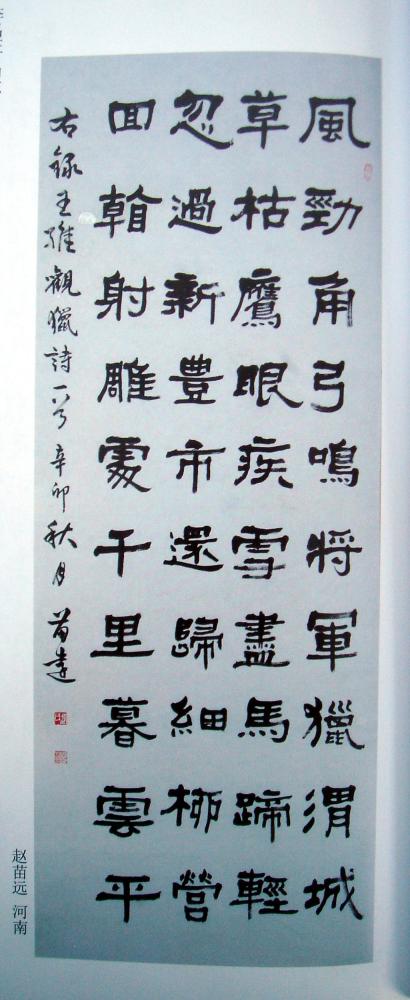 風勁角弓鳴將軍獵渭城
草枯鷹眼疾雪盡馬蹄輕
忽過新豐市還歸細柳營
回看射雕處千里暮雲平
右錄王維觀獵詩一首 辛卯秋月 苗遠
赵苗远 河南